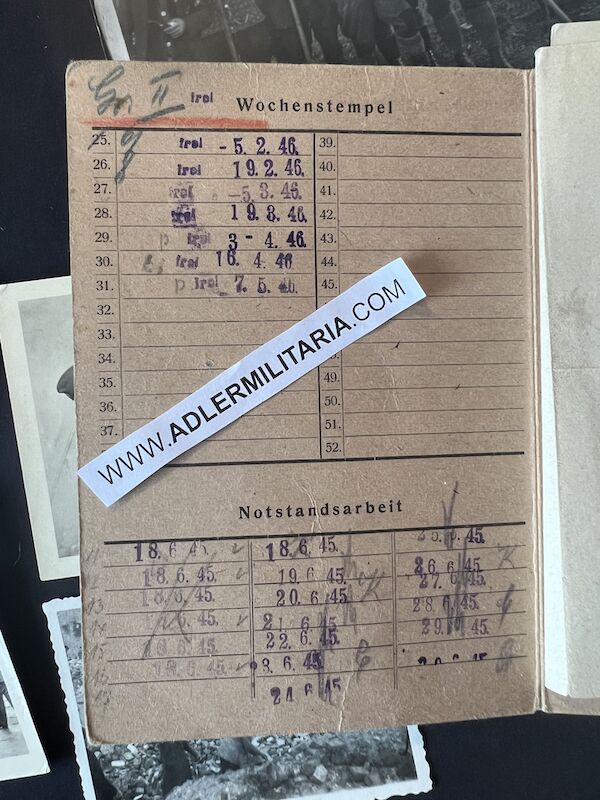 Gr. II frei Wochenstempel
25. frei - 5. 2. 46. 39.
26. frei 19. 2. 46. 40.
27. frei - 5. 3. 46. 41.
28. frei 19. 3. 46. 42.
29. frei 3 - 4. 46. 43.
30. frei 16. 4. 46 44.
31. frei 7. 5. 46. 45.
32.
33.
34.
35. 49.
36. 50.
37. 51.
52.
WWW.ADLERMILITARIA.COM
Notstandsarbeit
18. 6. 45. 18. 6. 45. 25. 6. 45.
18. 6. 45. 19. 6. 45. 26. 6. 45.
18. 6. 45. 20. 6. 45. 27. 6. 45.
6. 45. 21. 6. 45. 28. 6. 45.
18. 6. 45. 22. 6. 45. 29. 6. 45.
18. 6. 45. 3. 6. 45.
24. 6. 45.